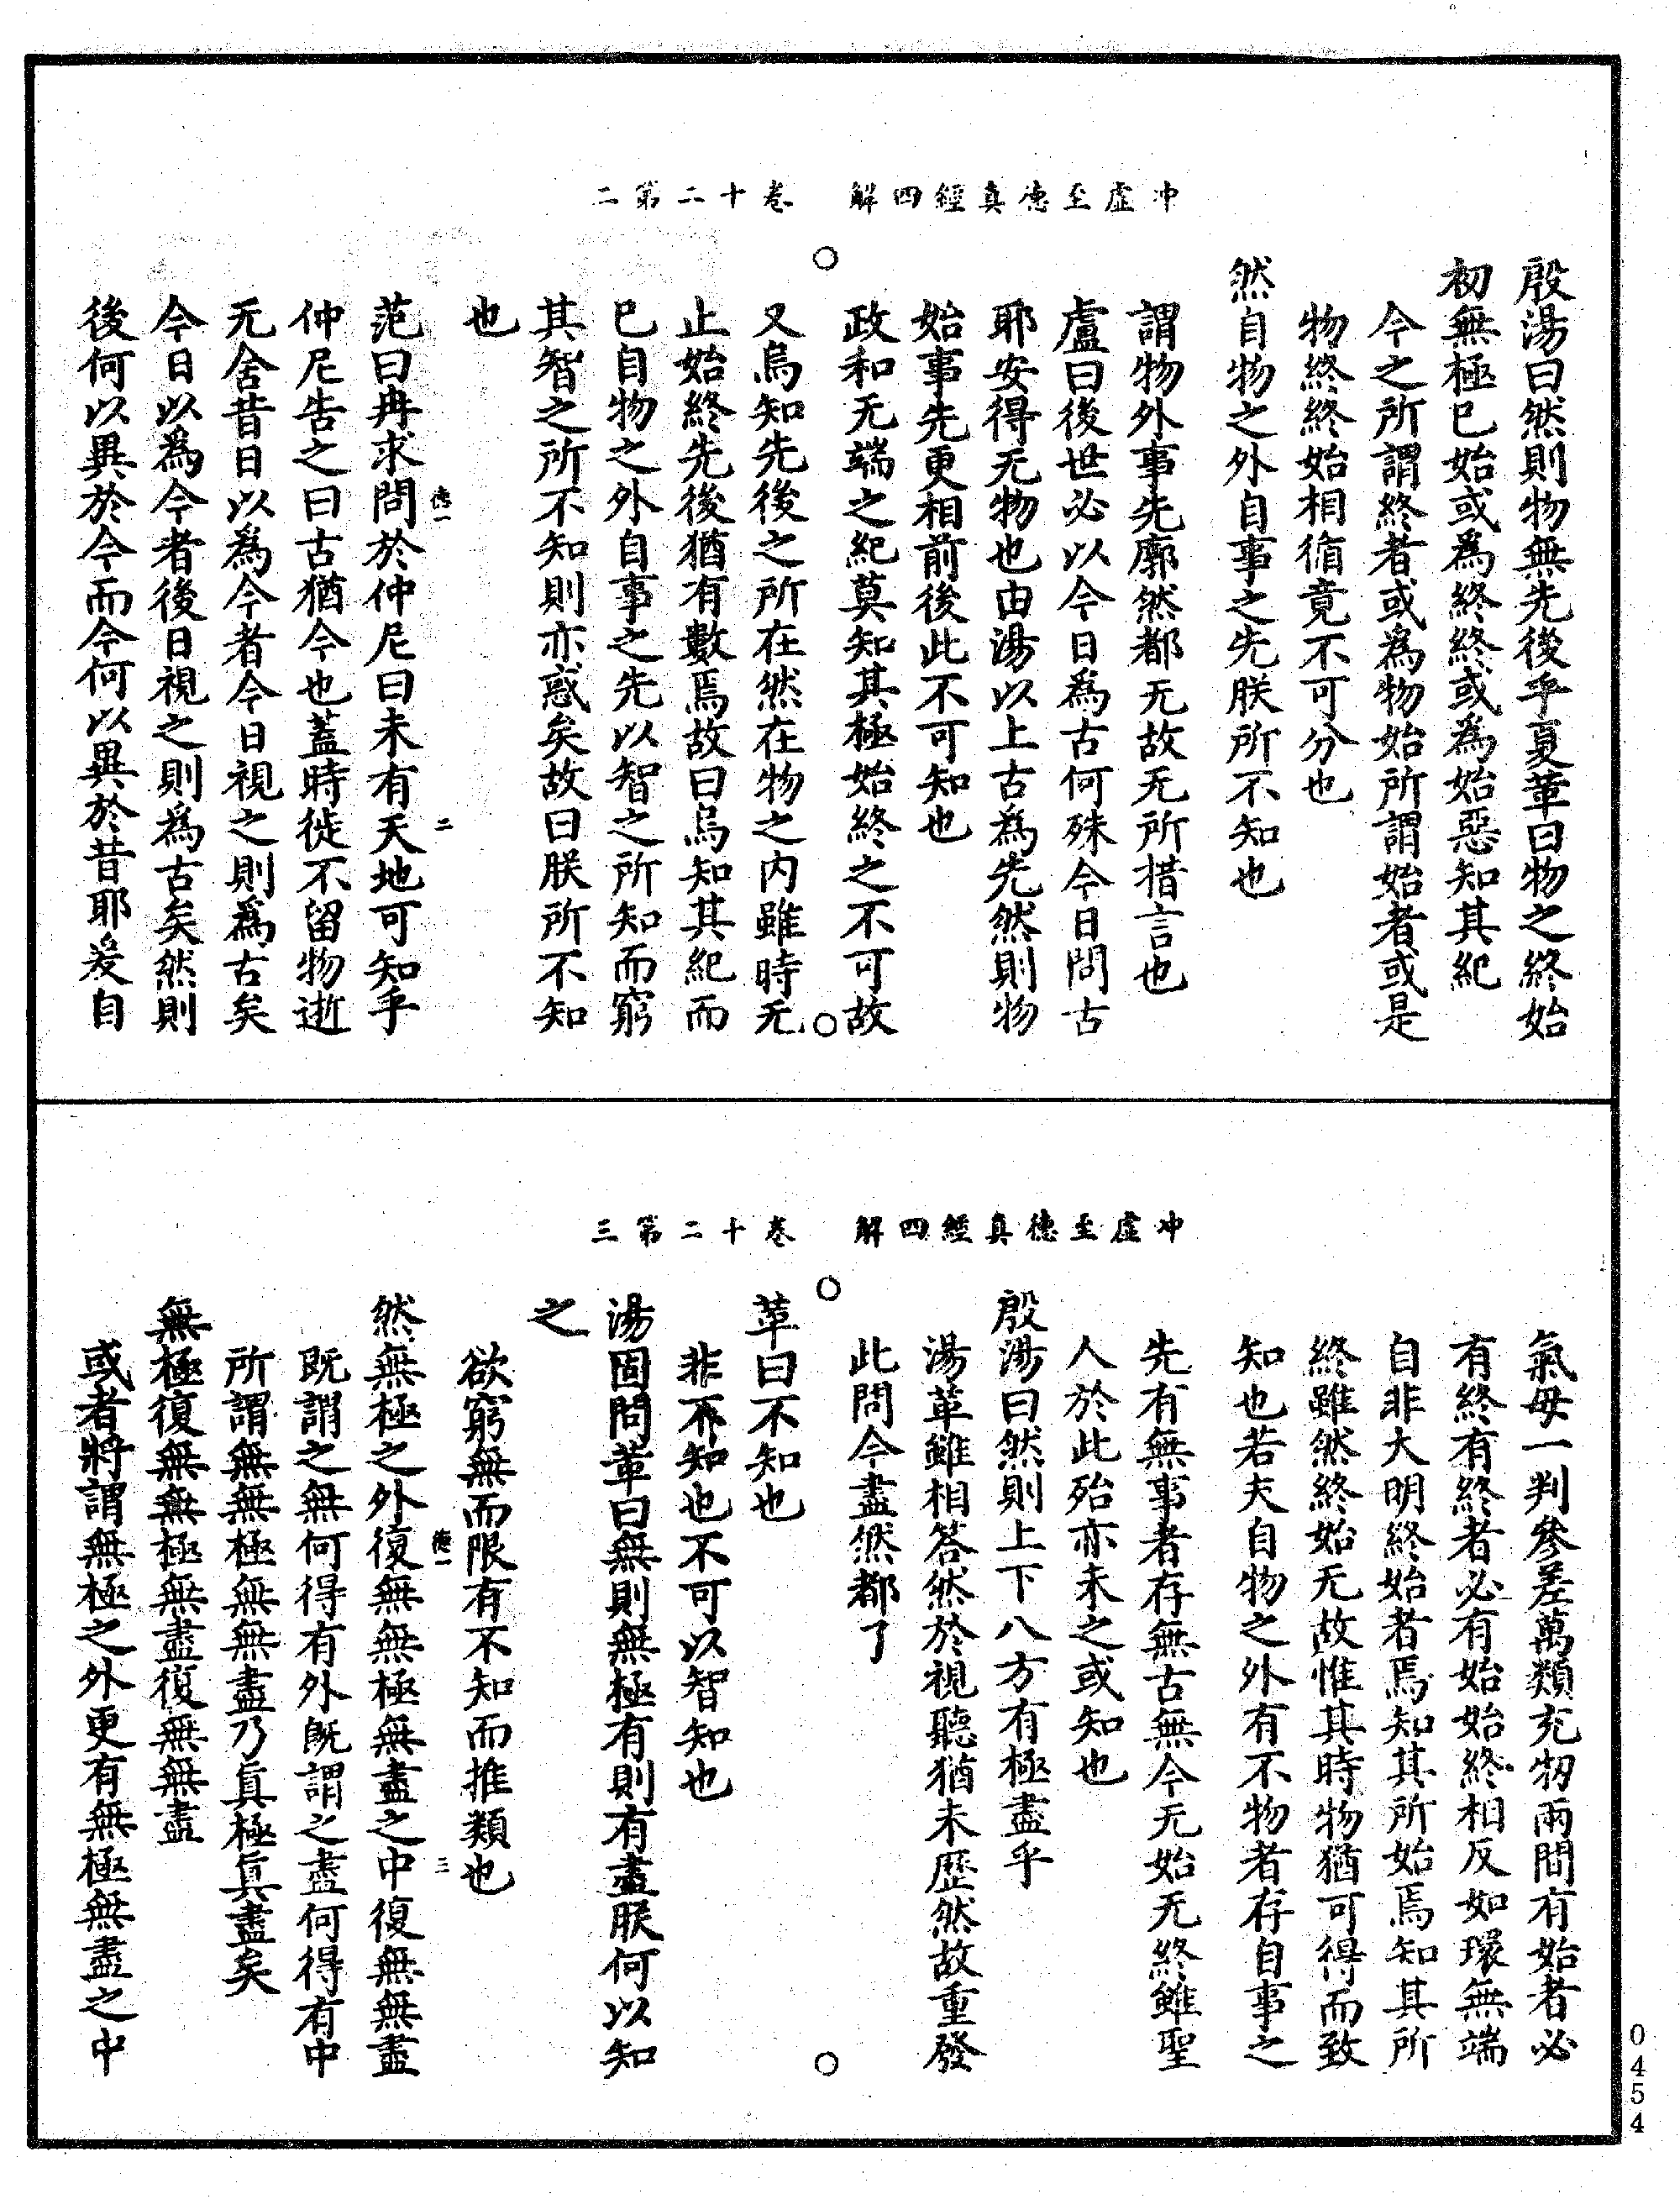 冲虛至德真經四解　卷十二第二
殷湯曰然則物無先後乎夏革曰物之終始
初無極已始或爲終終或爲始惡知其紀
今之所謂終者或爲物始所謂始者或是
物終終始相循竟不可分也
然自物之外自事之先朕所不知也
謂物外事先廓然都无故无所措言也
盧曰後世必以今日爲古何殊今日問古
耶安得无物也由湯以上古爲先然則物
始事先更相前後此不可知也
政和无端之紀莫知其極始終之不可故
又烏知先後之所在然在物之内雖時无
止始終先後猶有數焉故曰烏知其紀而
已自物之外自事之先以智之所知而窮
其智之所不知則亦惑矣故曰朕所不知
也
范曰冉求問於仲尼曰未有天地可知乎
仲尼告之曰古猶今也蓋時徙不留物逝
无舍昔日以爲今者今日視之則爲古矣
今日以爲今者後日視之則爲古矣然則
後何以異於今而今何以異於昔耶爰自
德一
二
冲虛至德真經四解　卷十二第三
氣母一判參差萬類充牣兩間有始者必
有終有終者必有始始終相反如環無端
自非大明終始者焉知其所始焉知其所
終雖然終始无故惟其時物猶可得而致
知也若夫自物之外有不物者存自事之
先有無事者存無古無今无始无終雖聖
人於此殆亦未之或知也
殷湯曰然則上下八方有極盡乎
湯革雖相答然於視聽猶未歷然故重發
此問令盡然都了
革曰不知也
非不知也不可以智知也
湯固問革曰無則無極有則有盡朕何以知
之
欲窮無而限有不知而推類也
然無極之外復無無極無盡之中復無無盡
既謂之無何得有外既謂之盡何得有中
所謂無無極無無盡乃真極真盡矣
無極復無無極無盡復無無盡
或者將謂無極之外更有無極無盡之中
德一
三
0454